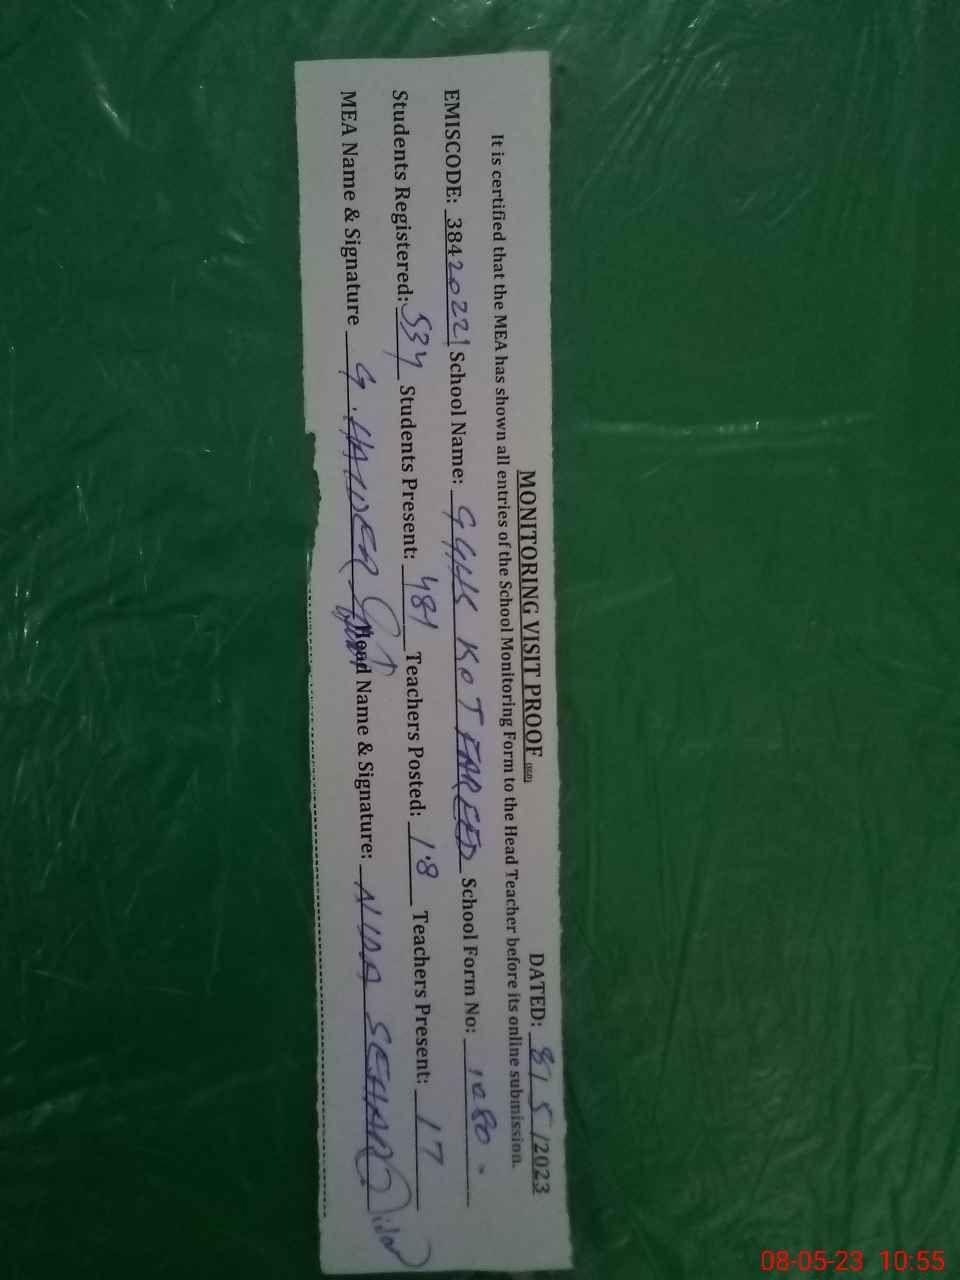 MONITORING VISIT PROOF DATED: 8/5/2023
It is certified that the MEA has shown all entries of the School Monitoring Form to the Head Teacher before its online submission.
EMISCODE: 38420221 School Name: GGHS KOT FAREED School Form No: 1080.
Students Registered: 534 Students Present: 481 Teachers Posted: 18 Teachers Present: 17
MEA Name & Signature G. HAIDER Head Name & Signature: NIDA SEHAR
08-05-23 10:55